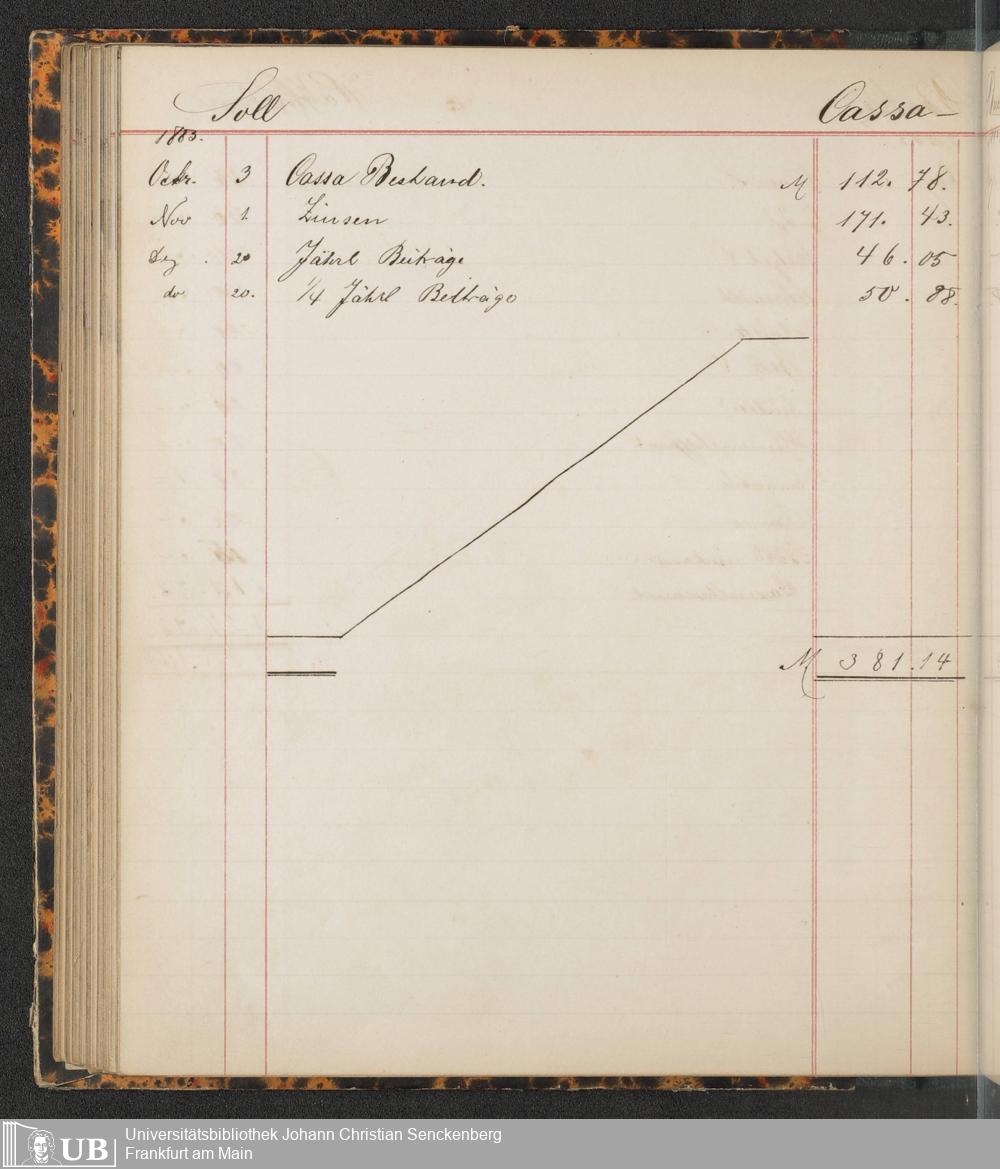 Soll Cassa –
1883.
Octr. 3 Cassa Bestand. M 112. 78.
Nov 1. Zinsen 171. 43.
Dez . 20 Jährl Beiträge 46. 05
do 20. 1/4 Jährl Beiträge 50. 88.
M 381.14
UB Universitätsbibliothek Johann Christian Senckenberg
Frankfurt am Main